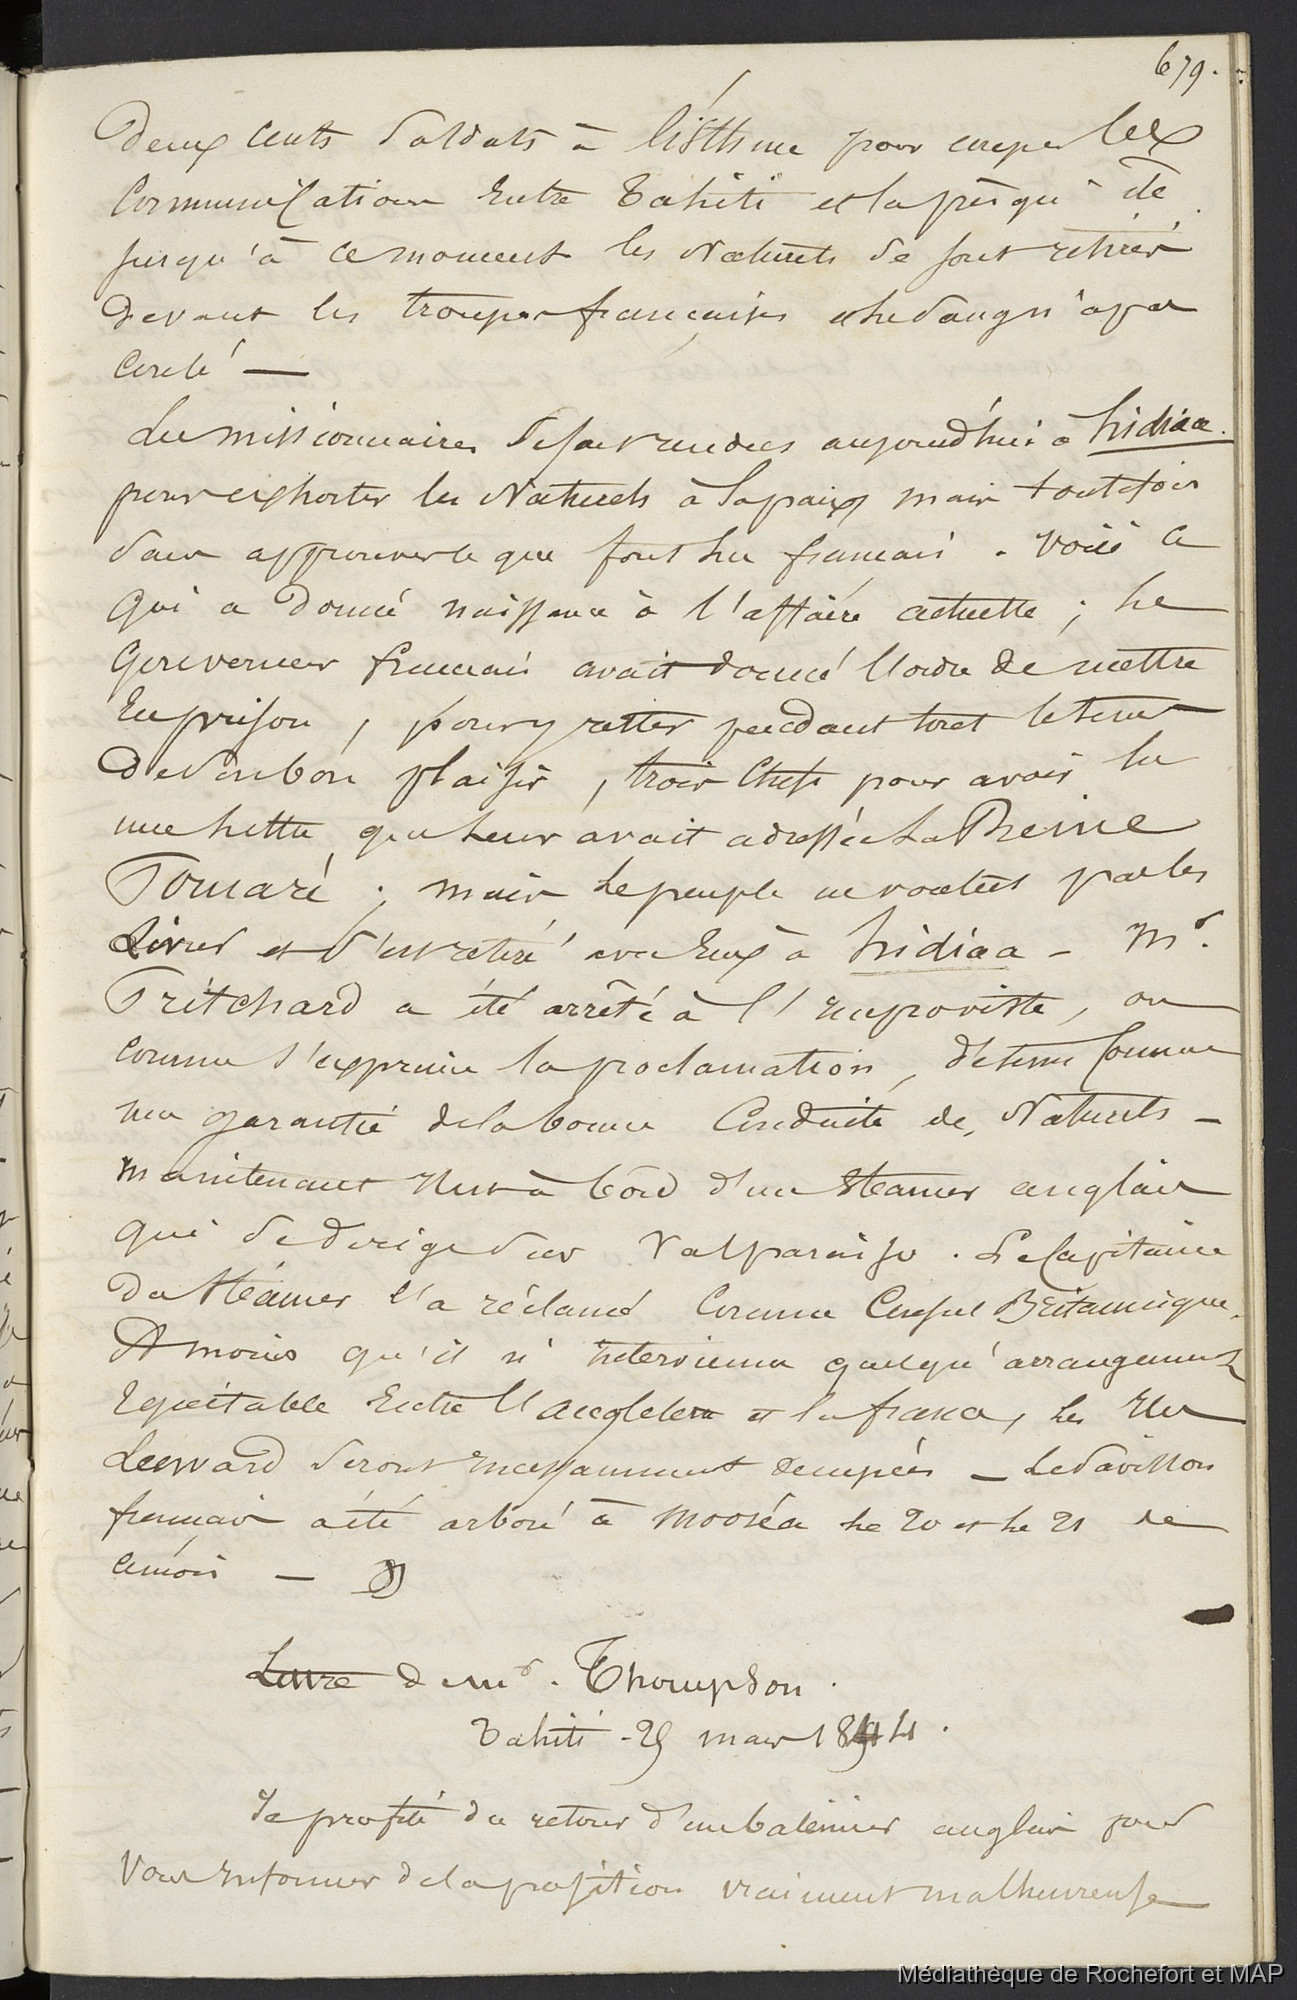 679.
Deux cents soldats à l'isthme pour couper les
Communications Entre Tahiti et la presqu'ile
jusqu'à ce moment les Naturels se sont retirés
devant les troupes françaises et le sang n'a pas
coulé —
Les missionnaires se sont rendus aujourd'hui à hidiaa.
pour exhorter les Naturels à la paix mais toutefois
sans approuver ce que font les français. Voici ce
qui a donné naissance à l'affaire actuelle ; Le
Gouverneur français avait donné l'ordre de mettre
En prison, pour y rester pendant tout le tems
de son bon plaisir, trois Chefs pour avoir lu
une lettre que leur avait adressée La Reine
Pomaré ; mais le peuple ne voulut pas les
Livrer et s'est retiré avec Eux à hidiaa — Mr.
Pritchard a été arrêté à l'improviste, ou
comme s'exprime la proclamation, détenu Comme
une garantie de la bonne Conduite des Naturels —
maintenant Il est à bord d'un Steamer anglais
qui se dirige sur Valparaiso. Le Capitaine
du Steamer l'a réclamé Comme Consul Britannique.
A moins qu'il n'intervienne quelqu'arrangement
Equitable Entre l'angleterre et la france, les Iles
Leeward seront incessamment occupées — Le Pavillon
français a été arboré à Mooréa le 20 et le 21 de
ce mois —
Lettre de Mr. Thompson.
Tahiti - 25 mars 1844.
Je profite du retour d'un baleinier anglais pour
Vous Informer de la position vraiment malheureuse
Médiathèque de Rochefort et MAP